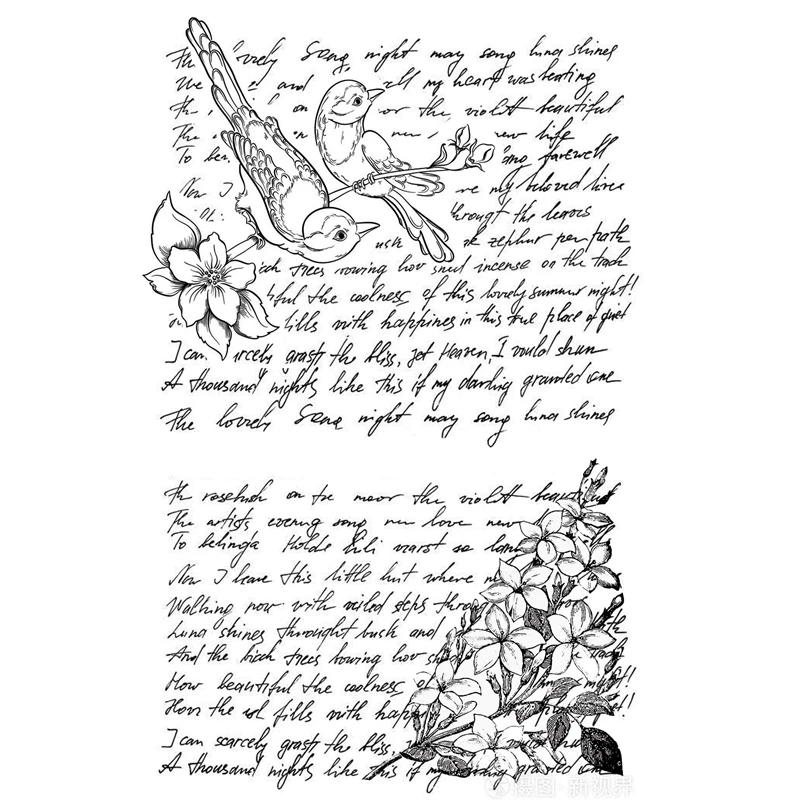 The lovely Song night may song luna shines
We and my heart was beating
The on or the violet beautiful
The new life
To be song farewell
Now I ve my beloved lives
througt the leaves
ush zephyr per path
ich trees rowing how sned incense on the track
iful the coolness of this lovely summer night!
ills with happines in this true place of quiet
I can rcely grasp the bliss, yet Heaven, I would shun
A thousand nights like this if my darling granted one
The lovely Song night may song luna shines
The rosebush on the moor the violett beautiful
The artists evening song new love new
To belinda Holde Lili warst so lan
Now I leave this little hut where m
Walking now with veiled steps throug
Luna shines throught bush and
And the birch trees bowing how s
How beautiful the coolness of
How the soul fills with happ
I can scarcely grasp the bliss, would
A thousand nights like this if my darling granted one
摄图·新视界